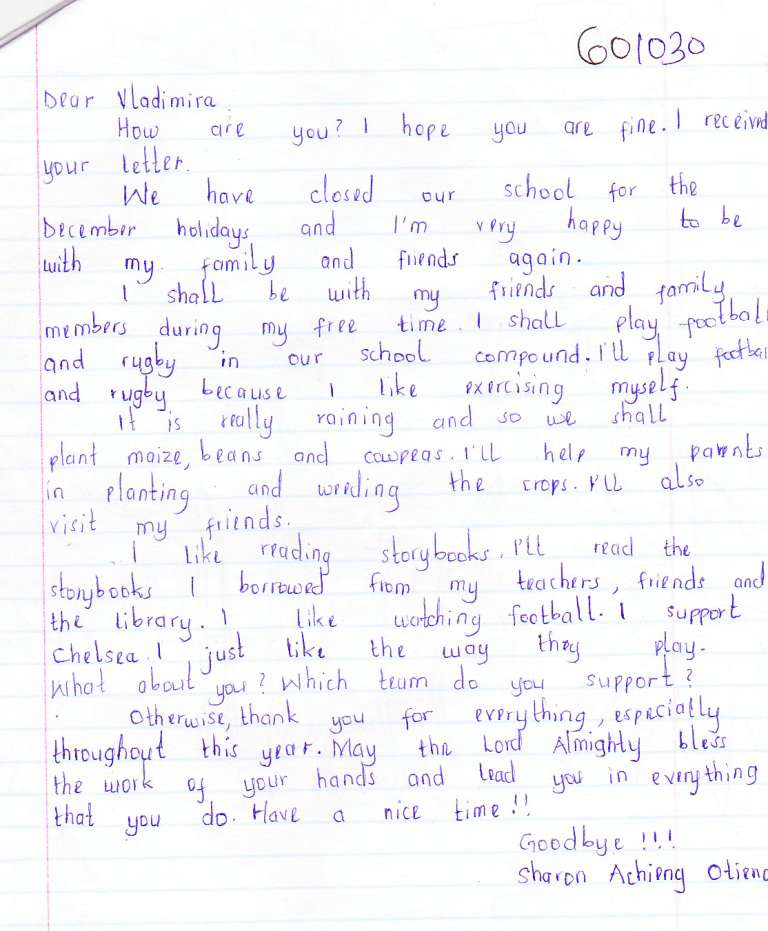 601030
Dear Vladimira.
How are you? I hope you are fine. I received
your letter.
We have closed our school for the
December holidays and I'm very happy to be
with my family and friends again.
I shall be with my friends and family
members during my free time. I shall play football
and rugby in our school compound. I'll play football
and rugby because I like exercising myself.
It is really raining and so we shall
plant maize, beans and cowpeas. I'll help my parents
in planting and weeding the crops. I'll also
visit my friends.
I like reading storybooks. I'll read the
storybooks I borrowed from my teachers, friends and
the library. I like watching football. I support
Chelsea. I just like the way they play.
What about you? Which team do you support?
Otherwise, thank you for everything, especially
throughout this year. May the Lord Almighty bless
the work of your hands and lead you in everything
that you do. Have a nice time!!
Goodbye!!!
Sharon Achieng Otieno